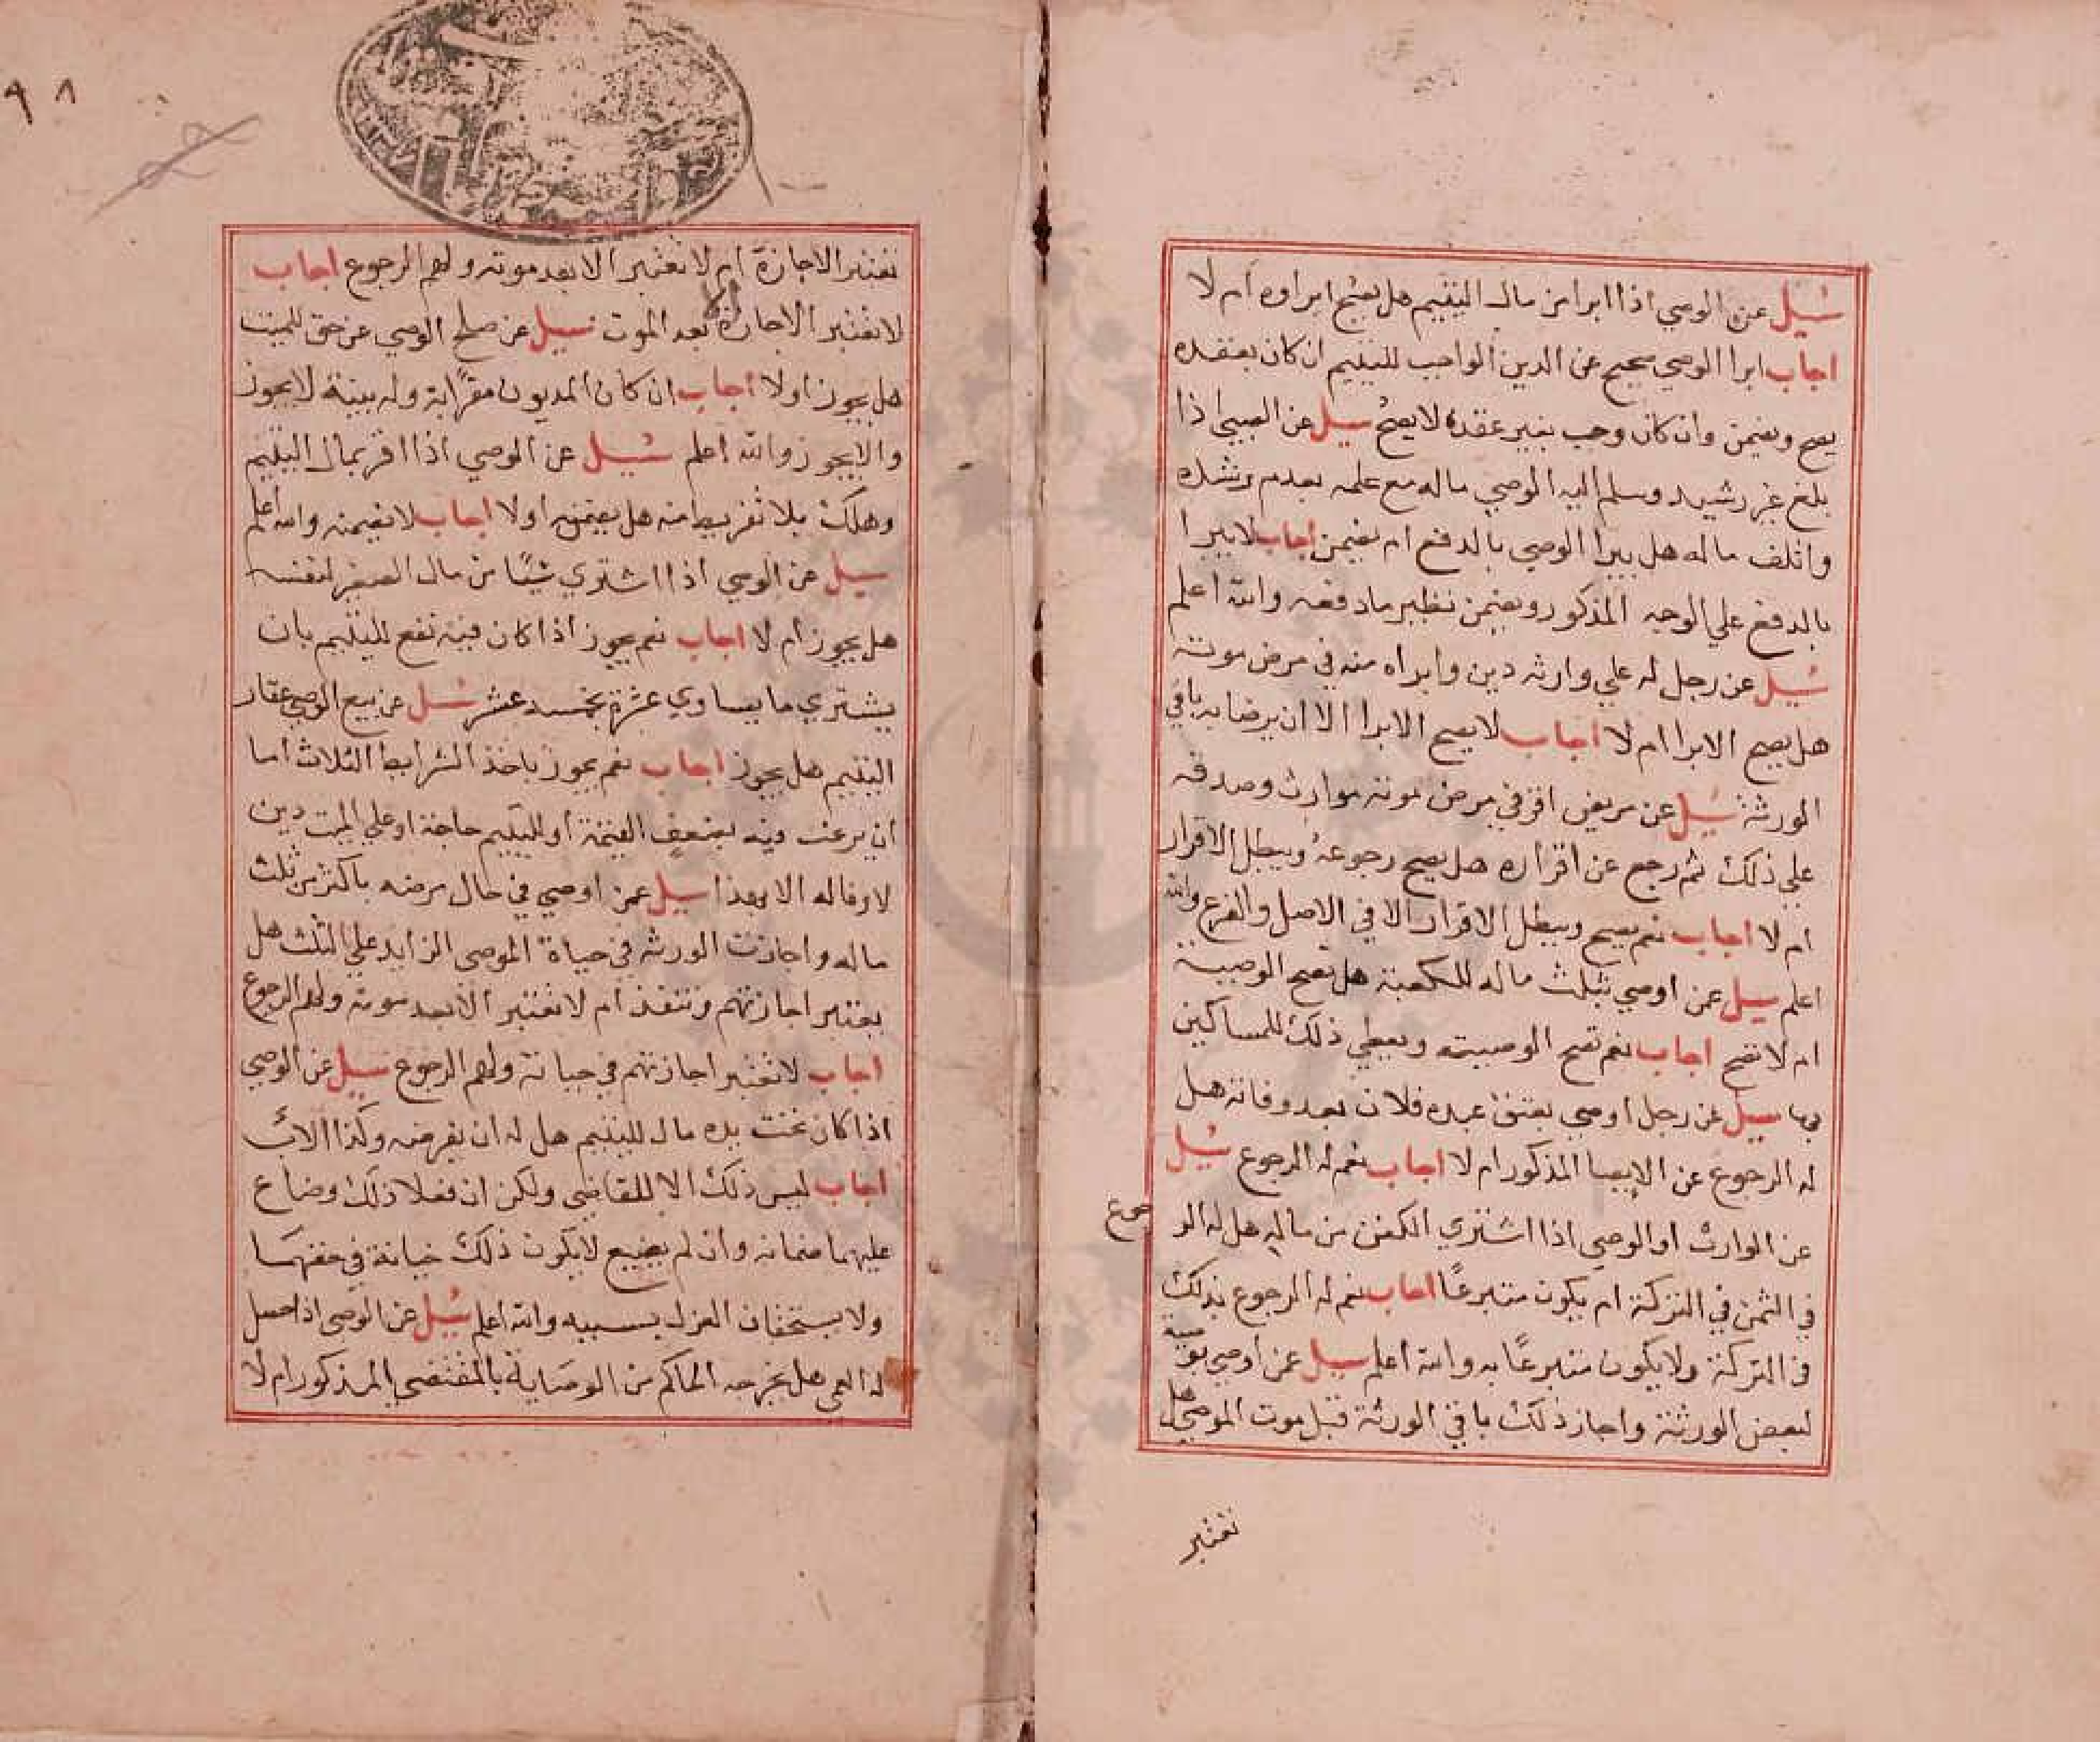 سئيل عن الوصي اذا ابرا من مال اليتيم هل يصح ابراوه ام لا
اجاب ابرا الوصي صحيح عن الدين الواجب لليتيم ان كان بعقده
يصح ويضمن وان كان وجب بغير عقده لا يصح سيل عن الصبي اذا
بلغ غير رشيد وسلم اليه الوصي ماله مع علمه بعدم رشده
واتلف ماله هل يبرا الوصي بالدفع ام يضمن اجاب لا يبرا
بالدفع علي الوجه المذكور ويضمن نظير ما دفعه والله اعلم
سئيل عن رجل له علي وارثه دين وابراه منه في مرض موته
هل يصح الابرا ام لا اجاب لا يصح الابرا الا ان يرضا به باقي
الورثة سئيل عن مريض اقر في مرض موته بوارث وصدقه
علي ذلك ثم رجع عن اقراره هل يصح رجوعه ويبطل الاقرار
ام لا اجاب نعم يصح ويبطل الاقرار الا في الاصل والفرع والله
اعلم سيل عمن اوصي بثلث ماله للكعبة هل تصح الوصية
ام لا تصح اجاب نعم تصح الوصية ويعطي ذلك للمساكين
بها سيل عن رجل اوصي بعتق عبده فلان بعد وفاته هل
له الرجوع عن الايصا المذكور ام لا اجاب نعم له الرجوع سئيل
عن الوارث او الوصي اذا اشتري الكفن من ماله هل له الر جوع
في الثمن في التركة ام يكون متبرعًا اجاب نعم له الرجوع بذلك
في التركة ولا يكون متبرعًا به والله اعلم سيل عمن اوصي بوصية
لبعض الورثة واجاز ذلك باقي الورثة قبل موت الموصي هل
تعتبر
٩٨
تعتبر الاجازة ام لا تعتبر الا بعد موته ولهم الرجوع اجاب
لا تعتبر الاجازة الا بعد الموت سيل عن صلح الوصي عن حق للميت
هل يجوز اولا اجاب ان كان المديون مقرًا به وله بينة لا يجوز
والا يجوز والله اعلم سئيل عن الوصي اذا اقر بمال اليتيم
وهلك بلا تفريط منه هل يضمن اولا اجاب لا يضمنه والله اعلم
سيل عن الوصي اذا اشتري شيًا من مال الصغير لنفسه
هل يجوز ام لا اجاب نعم يجوز اذا كان فيه نفع لليتيم بان
يشتري ما يساوي عشرة بخمسه عشر سئل عن بيع الوصي عقار
اليتيم هل يجوز اجاب نعم يجوز باحد الشرايط الثلاث اما
ان يرغب فيه بضعف القيمة او لليتيم حاجة او علي الميت دين
لا وفا له الا بهذا سيل عمن اوصي في حال مرضه باكثر من ثلث
ماله واجازت الورثه في حياة الموصي الزايد علي الثلث هل
يعتبر اجازتهم وتنفذ ام لا تعتبر الا بعد موته ولهم الرجوع
اجاب لا تعتبر اجازتهم في حياته ولهم الرجوع سيل عن الوصي
اذا كان تحت يده مال لليتيم هل له ان يقرضه وكذا الاب
اجاب ليس ذلك الا للقاضي ولكن ان فعلا ذلك وضاع
عليهما ضمانه وان لم يضيع لا يكون ذلك خيانة في حقهما
ولا يستحقان العزل بسببه والله اعلم سئيل عن الوصي اذا حصل
له العمي هل يخرجه الحاكم من الوصاية بالمقتضي المذكور ام لا